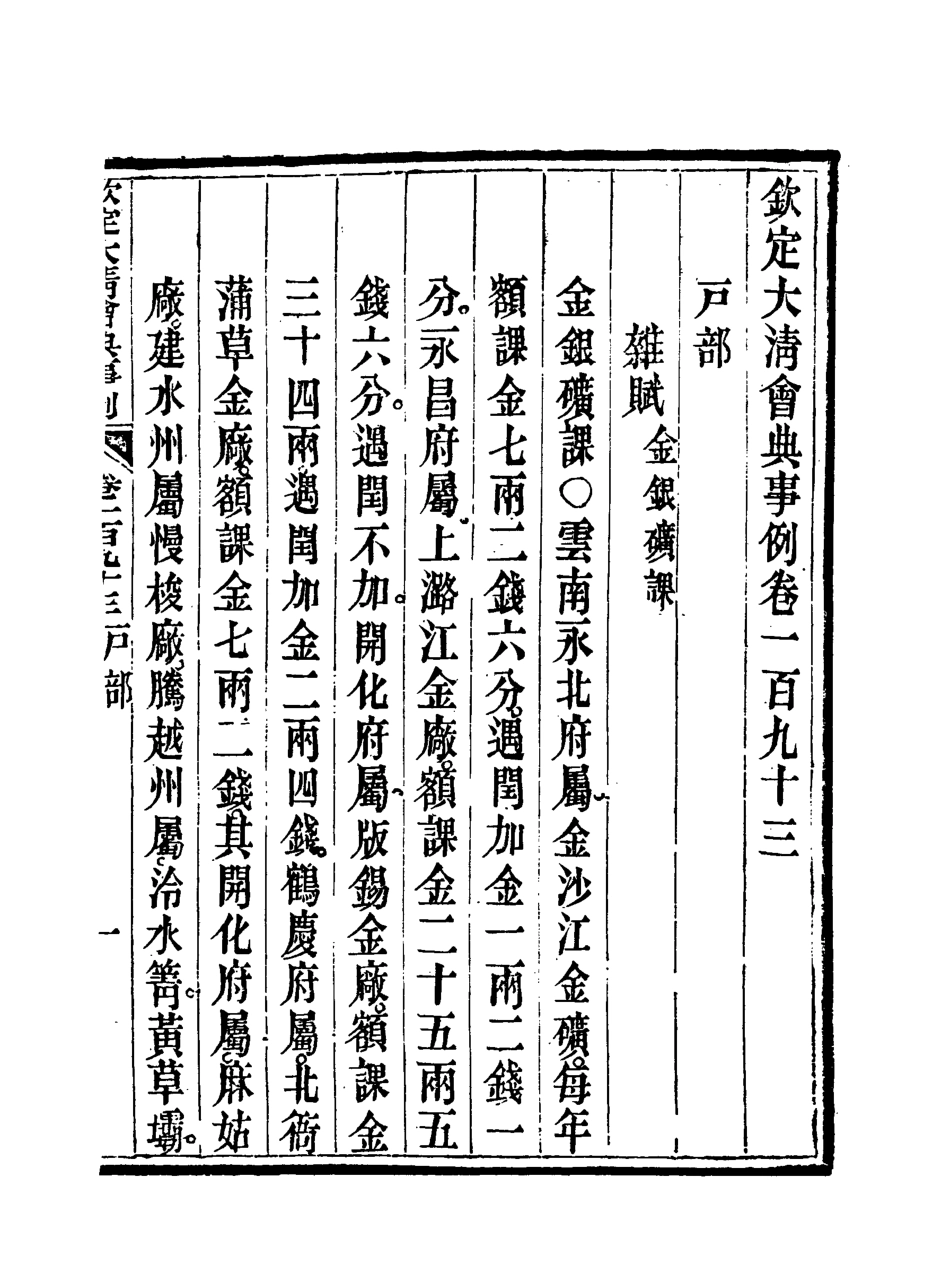 欽定大淸會典事例卷一百九十三
戸部
雜賦金銀礦課
金銀礦課○雲南永北府屬金沙江金礦。每年
額課金七兩二錢六分。遇閏加金一兩二錢一
分。永昌府屬上潞江金廠。額課金二十五兩五
錢六分。遇閏不加。開化府屬版錫金廠。額課金
三十四兩。遇閏加金二兩四錢。鶴慶府屬。北衙
蒲草金廠。額課金七兩二錢。其開化府屬。麻姑
廠。建水州屬慢梭廠。騰越州屬。冷水箐。黃草壩。
欽定大淸會典事例 卷一百九十三戸部 一